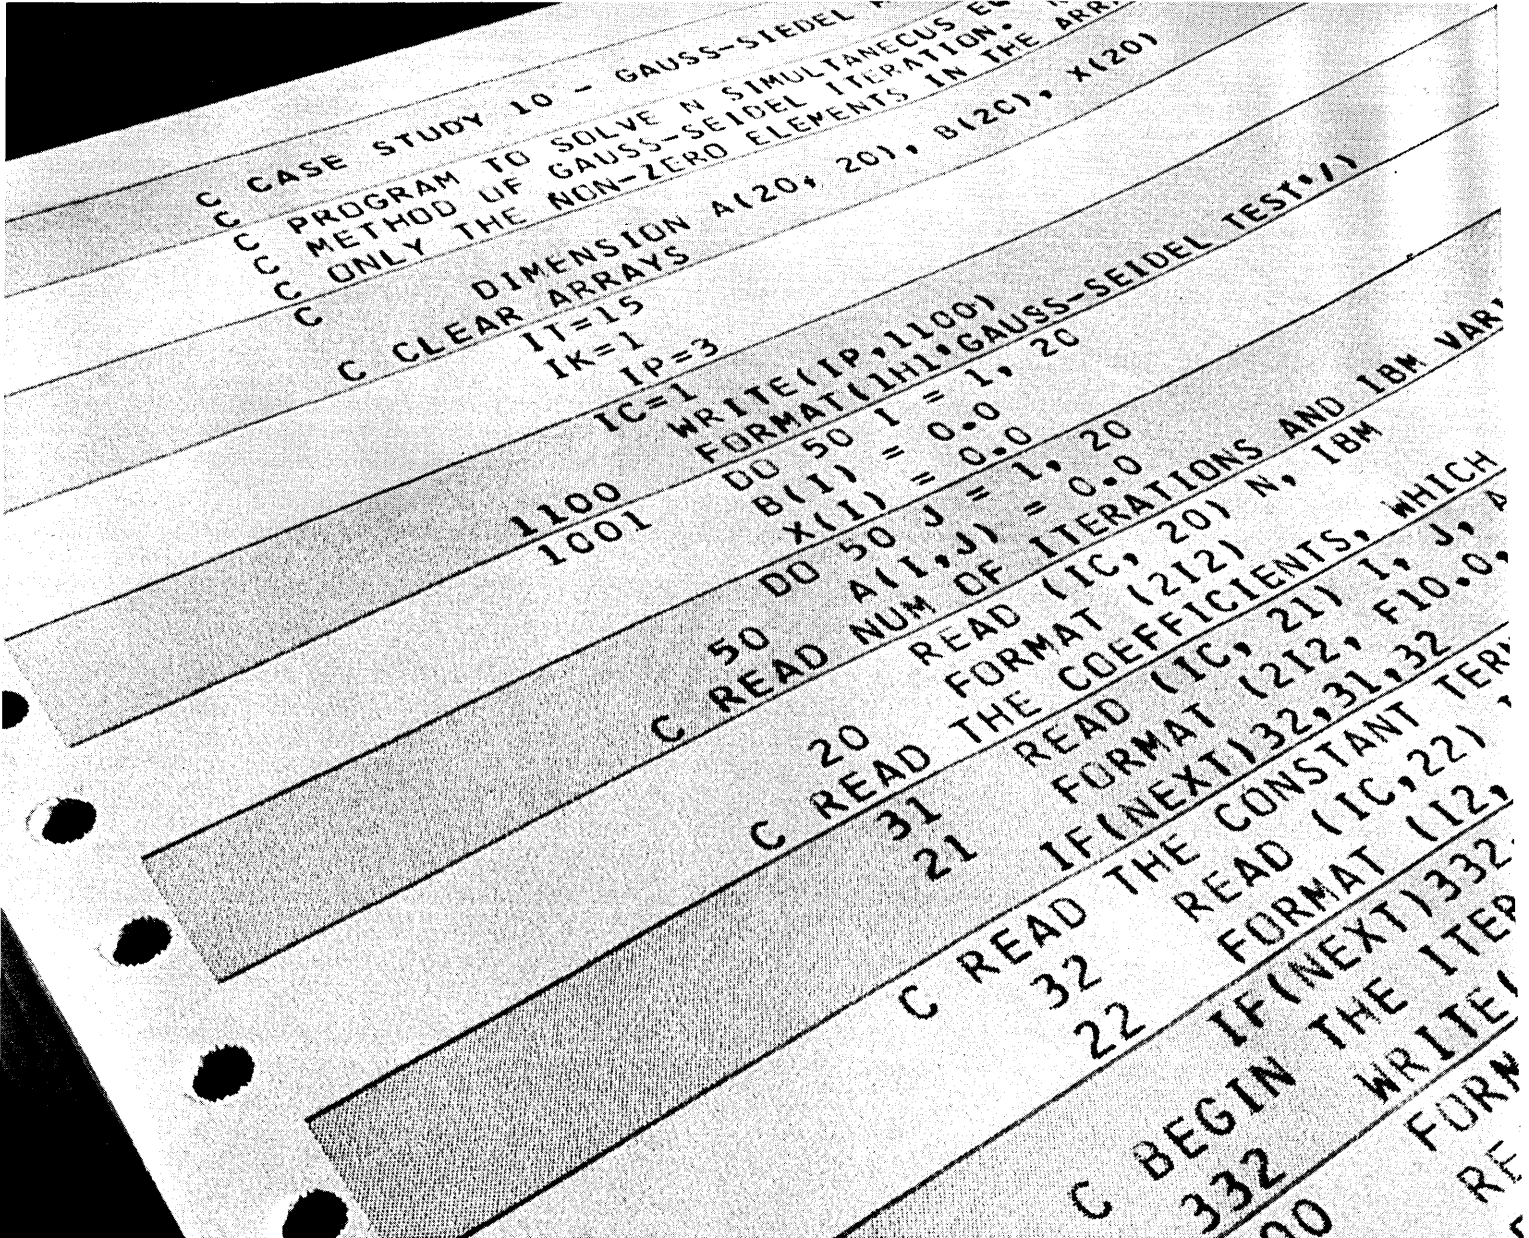 C CASE STUDY 10 - GAUSS-SIEDEL
C
C PROGRAM TO SOLVE N SIMULTANECUS
C METHOD OF GAUSS-SEIDEL ITERATION.
C ONLY THE NON-ZERO ELEMENTS IN THE ARR
C
DIMENSION A(20, 20), B(20), X(20)
C CLEAR ARRAYS
IT=15
IK=1
IP=3
IC=1
WRITE(IP,1100)
1100 FORMAT(1H1'GAUSS-SEIDEL TEST'/)
1001 DO 50 I = 1, 20
B(I) = 0.0
X(I) = 0.0
DO 50 J = 1, 20
50 A(I,J) = 0.0
C READ NUM OF ITERATIONS AND IBM VARI
READ (IC, 20) N, IBM
20 FORMAT (2I2)
C READ THE COEFFICIENTS, WHICH
31 READ (IC, 21) I, J, A
21 FORMAT (2I2, F10.0,
IF(NEXT)32,31,32
C READ THE CONSTANT TER
32 READ (IC,22)
22 FORMAT (I2,
IF(NEXT)332
C BEGIN THE ITER
332 WRITE(
FORM
RE